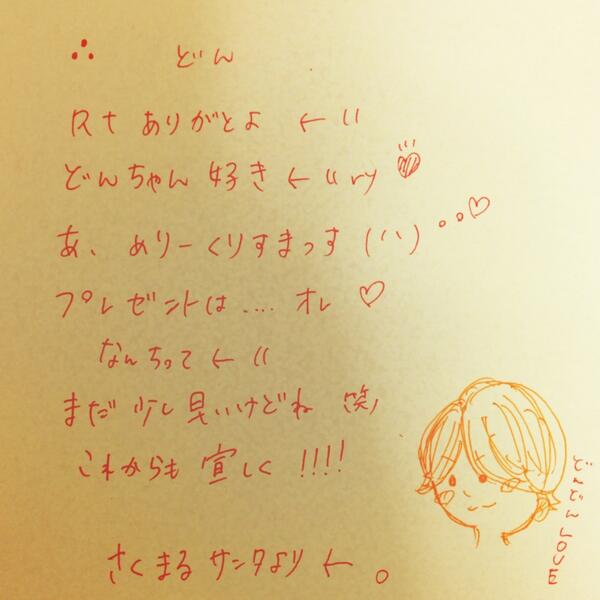 ∴ どん
Rt ありがとよ ← ((
どんちゃん 好き ← (( ry ♥
あ、めりーくりすまっす (ハハ) 。。♡
プレゼントは.... オレ ♡
なんちって ← ((
まだ 少し 早いけどね 笑ノ
これからも 宜しく !!!!
さくまる サンタより ← 。
どんどん LOVE